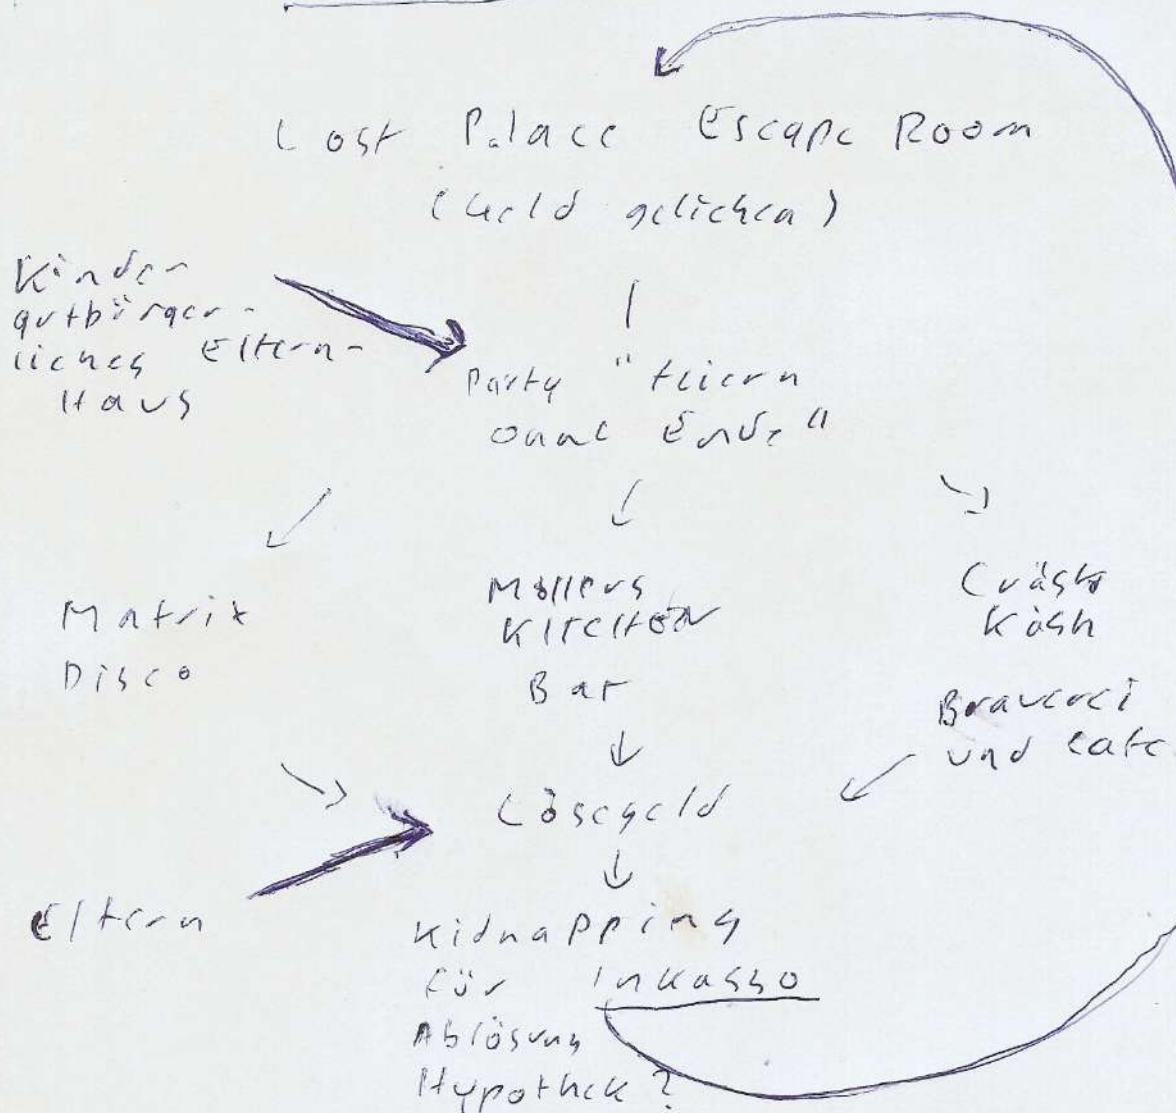 Lost Palace Escape Room
(Geld geliehen)
Kinder
gutbürger-
liches Eltern-
Haus
Party "Feiern
ohne Ende"
Matrix
Disco
Bar
Brauerei
und Cafe
Lösegeld
Eltern
Kidnapping
für Inkasso
Ablösung
Hypothek?